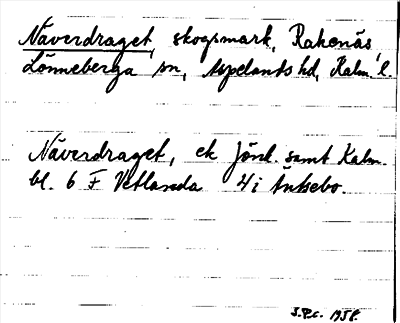 Näverdraget, skogsmark, Rakenäs,
Lönneberga sn, Aspelands hd, Kalm. l.
Näverdraget, ek Jönk. samt Kalm.
bl. 6 F Vetlanda 4 i Äntsebo.
1958.